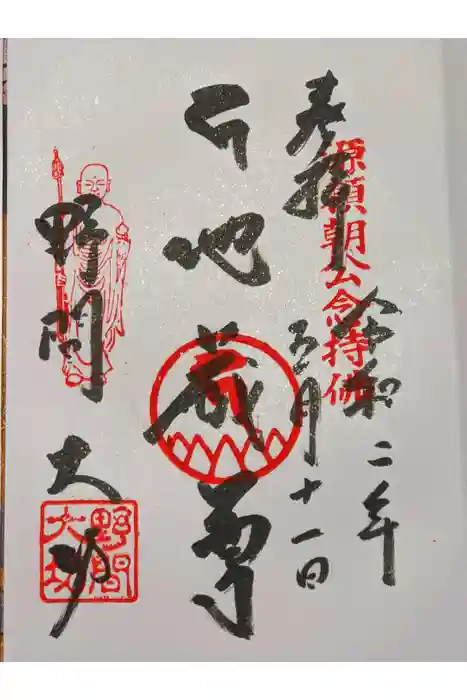 奉拝
源頼朝公念持佛
令和二年
月十一日
地蔵尊
野間大坊
野間
大坊